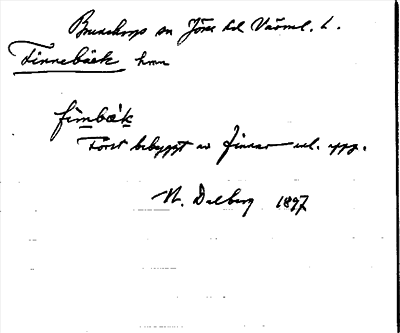 Brunskogs sn Jösse hd Värml. l.
Finnebäck hmn
fìmbæ̀k
Först bebyggt av finnar enl. uppg.
N. Dalberg 1897